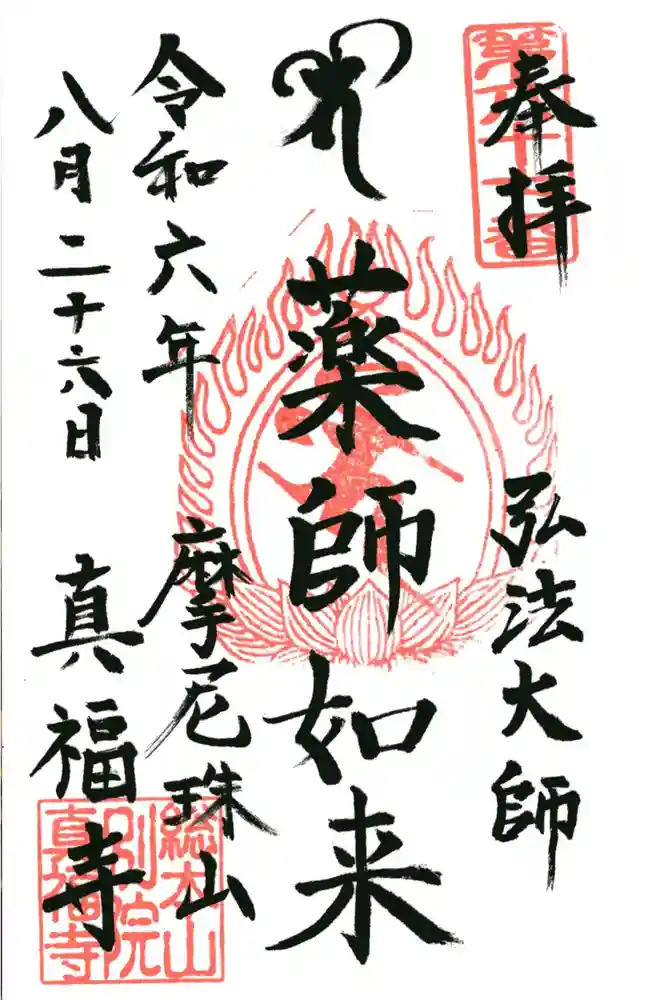 奉拝
弘法大師
薬師如来
令和六年
八月二十六日
摩尼珠山
真福寺
総本山
別院
真福寺